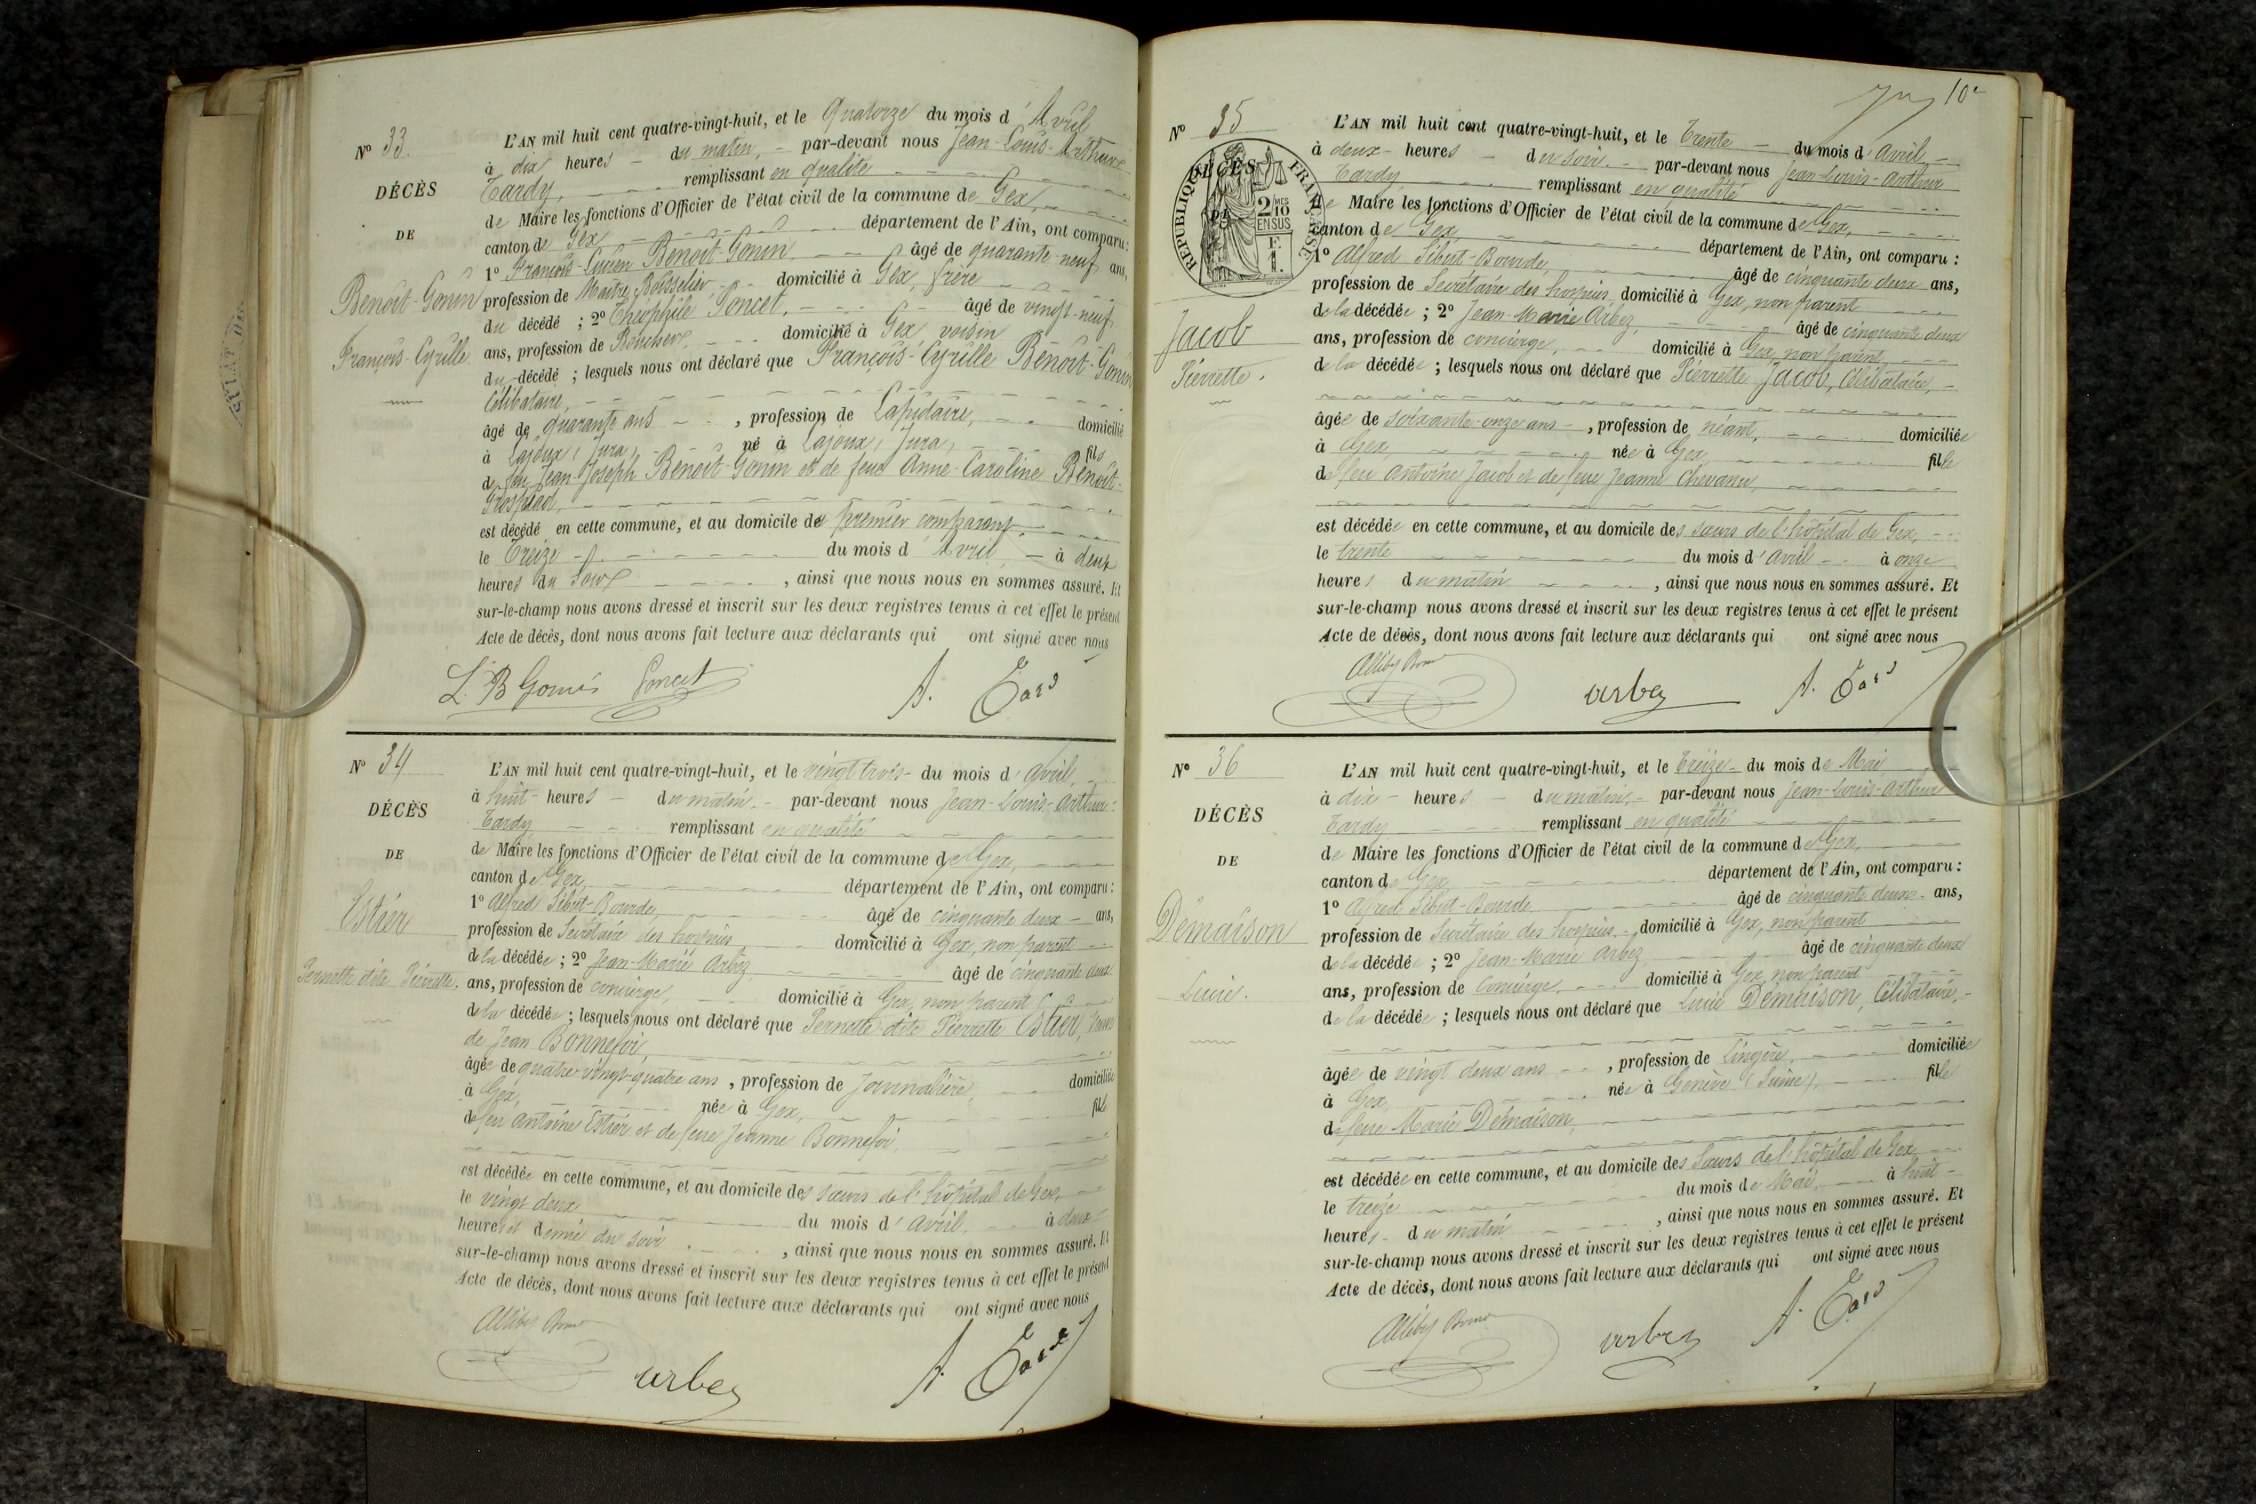 N° 33.
DÉCÈS
DE
Benoit-Gonin
François-Cyrille
L'AN mil huit cent quatre-vingt-huit, et le Quatorze du mois d'Avril
à dix heures du matin, par-devant nous Jean-Louis-Arthur
Tardy, remplissant en qualité
de Maire les fonctions d'Officier de l'état civil de la commune de Gex,
canton de Gex département de l'Ain, ont comparu :
1° François-Lucien Benoit-Gonin âgé de quarante-neuf ans,
profession de Maître Boisselier domicilié à Gex, frère
du décédé ; 2° Théophile Poncet, âgé de vingt-neuf
ans, profession de Boucher, domicilié à Gex voisin
du décédé ; lesquels nous ont déclaré que François-Cyrille Benoit-Gonin
Célibataire,
âgé de quarante ans, profession de Lapidaire, domicilié
à Lajoux, Jura, né à Lajoux, Jura, fils
de feu Jean-Joseph Benoit-Gonin et de feue Anne-Caroline Benoit-
Grospiod,
est décédé en cette commune, et au domicile du premier comparant,
le Treize du mois d'Avril, à deux
heures du soir, ainsi que nous nous en sommes assuré. Et
sur-le-champ nous avons dressé et inscrit sur les deux registres tenus à cet effet le présent
Acte de décès, dont nous avons fait lecture aux déclarants qui ont signé avec nous
L. B Gonin Poncet A. Tardy
N° 34
DÉCÈS
DE
Estier
Pernette dite Pierrette.
L'AN mil huit cent quatre-vingt-huit, et le vingt trois du mois d'avril,
à huit heures du matin, par-devant nous Jean-Louis-Arthur
Tardy remplissant en qualité
de Maire les fonctions d'Officier de l'état civil de la commune de Gex,
canton de Gex, département de l'Ain, ont comparu :
1° Alfred Sibut-Bourde, âgé de cinquante deux ans,
profession de Secrétaire des hospices, domicilié à Gex, non parent
de la décédée ; 2° Jean-Marie Arbez âgé de cinquante deux
ans, profession de concierge, domicilié à Gex, non parent
de la décédée ; lesquels nous ont déclaré que Pernette dite Pierrette Estier, Veuve
de Jean Bonnefoi,
âgée de quatre vingt-quatre ans, profession de Journalière, domiciliée
à Gex, née à Gex, fille
de feu Antoine Estier et de feue Jeanne Bonnefoi,
est décédée en cette commune, et au domicile des sœurs de l'hôpital de Gex,
le vingt deux du mois d'avril, à deux
heures et demie du soir, ainsi que nous nous en sommes assuré. Et
sur-le-champ nous avons dressé et inscrit sur les deux registres tenus à cet effet le présent
Acte de décès, dont nous avons fait lecture aux déclarants qui ont signé avec nous
arbez A. Tardy
10
N° 35
DÉCÈS
DE
RÉPUBLIQUE FRANÇAISE
2/10 MES
EN SUS
F.
1.
Jacob
Pierrette.
L'AN mil huit cent quatre-vingt-huit, et le Trente du mois d'avril
à deux heures du soir par-devant nous Jean-Louis-Arthur
Tardy remplissant en qualité
de Maire les fonctions d'Officier de l'état civil de la commune de Gex,
canton de Gex département de l'Ain, ont comparu :
1° Alfred Sibut-Bourde, âgé de cinquante deux ans,
profession de Secrétaire des hospices, domicilié à Gex, non parent
de la décédée ; 2° Jean-Marie Arbez, âgé de cinquante deux
ans, profession de concierge, domicilié à Gex, non parent
de la décédée ; lesquels nous ont déclaré que Pierrette Jacob, Célibataire,
âgée de soixante-onze ans, profession de néant, domiciliée
à Gex, née à Gex, fille
de feu Antoine Jacob et de feue Jeanne
est décédée en cette commune, et au domicile des sœurs de l'hôpital de Gex,
le trente du mois d'avril à onze
heures du matin, ainsi que nous nous en sommes assuré. Et
sur-le-champ nous avons dressé et inscrit sur les deux registres tenus à cet effet le présent
Acte de décès, dont nous avons fait lecture aux déclarants qui ont signé avec nous
arbez A. Tardy
N° 36
DÉCÈS
DE
Démaison
Lucie.
L'AN mil huit cent quatre-vingt-huit, et le treize du mois de Mai
à dix heures du matin, par-devant nous Jean-Louis-Arthur
Tardy remplissant en qualité
de Maire les fonctions d'Officier de l'état civil de la commune de Gex,
canton de Gex département de l'Ain, ont comparu :
1° Alfred Sibut-Bourde âgé de cinquante deux ans,
profession de Secrétaire des hospices, domicilié à Gex, non parent
de la décédée ; 2° Jean-Marie Arbez âgé de cinquante deux
ans, profession de Concierge, domicilié à Gex, non parent
de la décédée ; lesquels nous ont déclaré que Lucie Démaison, Célibataire,
âgée de vingt deux ans, profession de Lingère, domiciliée
à Gex, née à Genève (Suisse), fille
de feue Marie Démaison,
est décédée en cette commune, et au domicile des Sœurs de l'hôpital de Gex
le treize du mois de Mai, à huit
heures du matin, ainsi que nous nous en sommes assuré. Et
sur-le-champ nous avons dressé et inscrit sur les deux registres tenus à cet effet le présent
Acte de décès, dont nous avons fait lecture aux déclarants qui ont signé avec nous
arbez A. Tardy